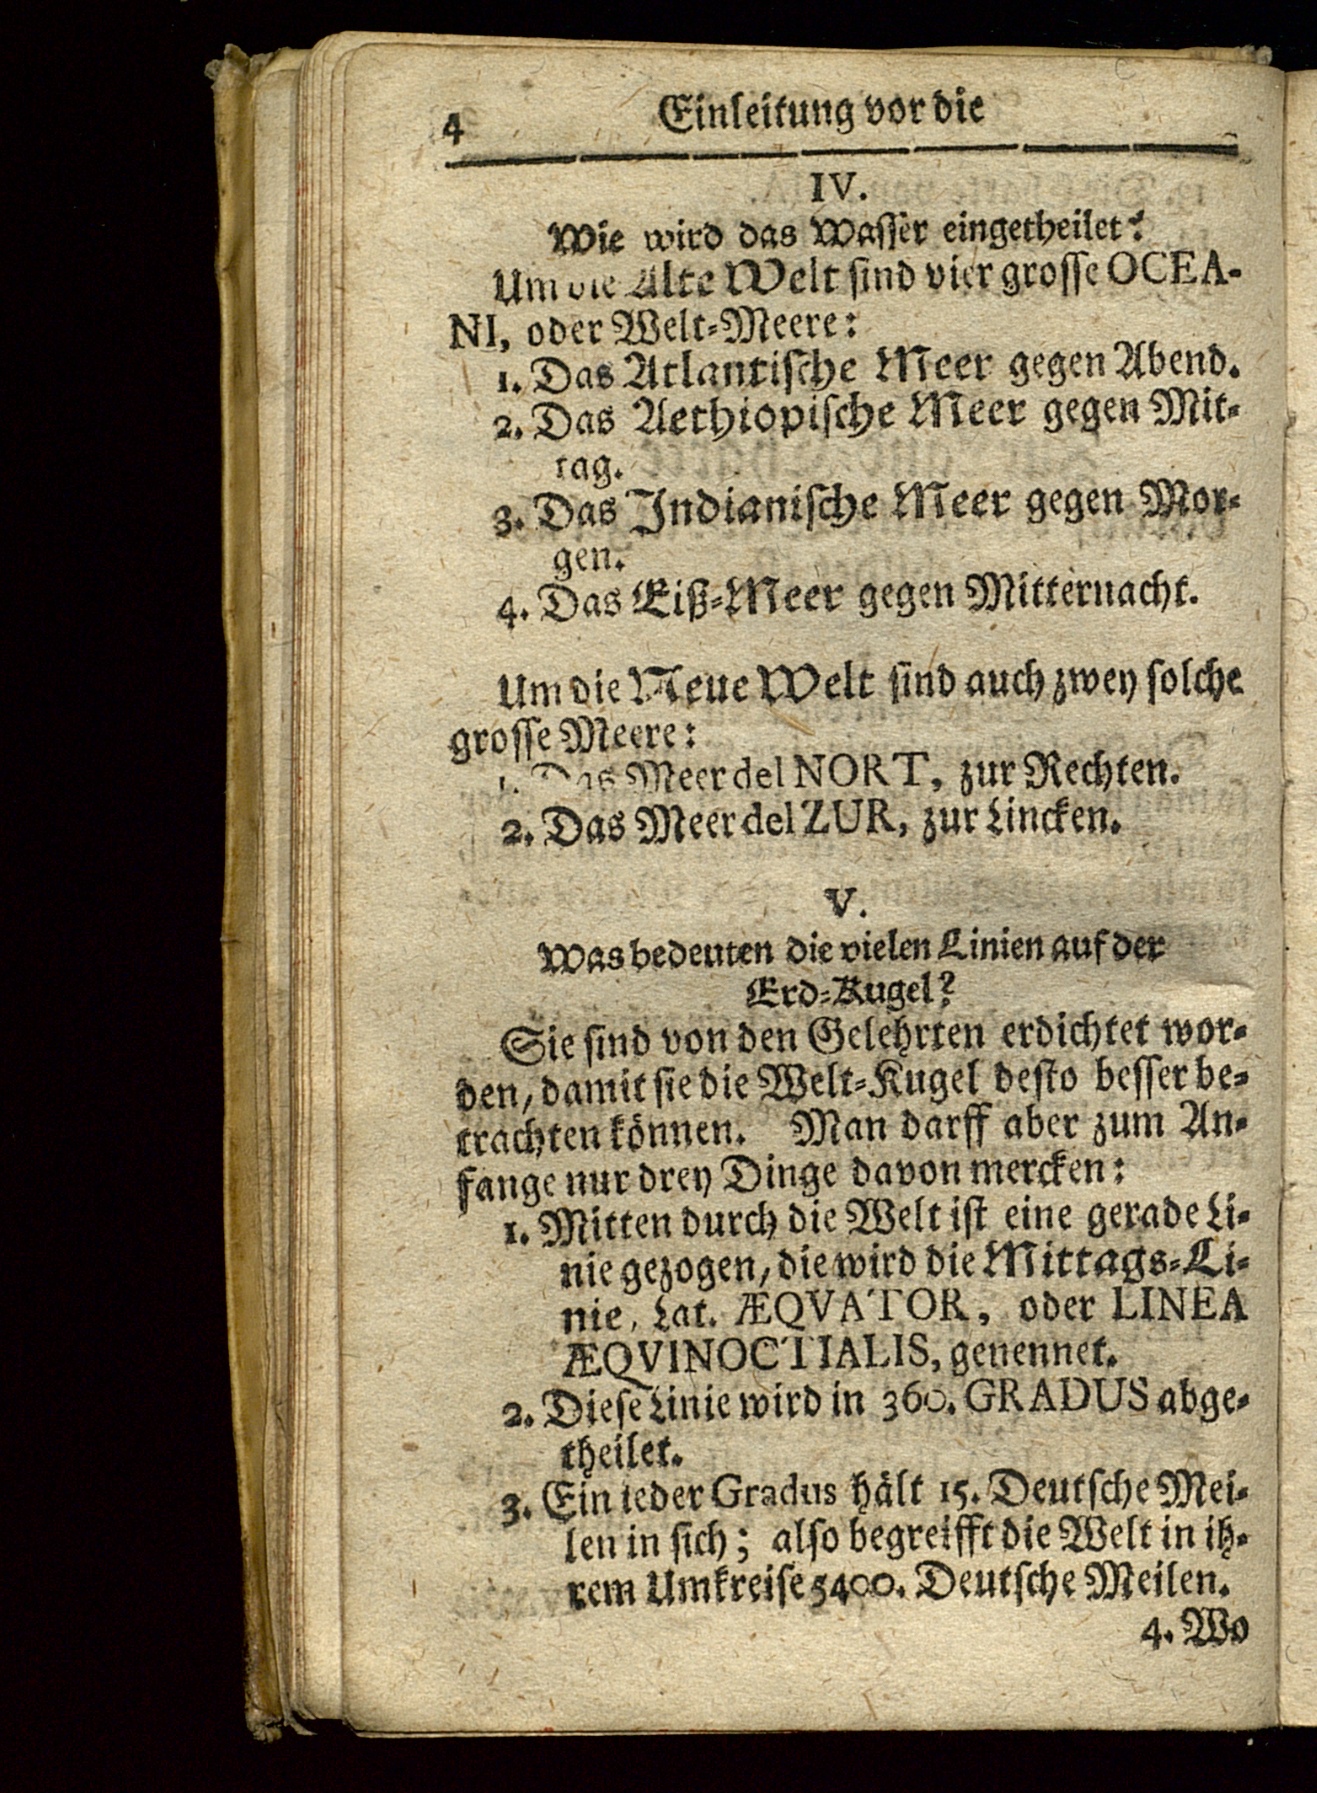 4 Einleitung vor die
IV.
Wie wird das Wasser eingetheilet?
Um die Alte Welt sind vier grosse OCEA-
NI, oder Welt-Meere:
1. Das Atlantische Meer gegen Abend.
2. Das Aethiopische Meer gegen Mit-
tag.
3. Das Indianische Meer gegen Mor-
gen.
4. Das Eiß-Meer gegen Mitternacht.
Um die Neue Welt sind auch zwey solche
grosse Meere:
1. Das Meer del NORT, zur Rechten.
2. Das Meer del ZUR, zur Lincken.
V.
Was bedeuten die vielen Linien auf der
Erd-Kugel?
Sie sind von den Gelehrten erdichtet wor-
den, damit sie die Welt-Kugel desto besser be-
trachten können. Man darff aber zum An-
fange nur drey Dinge davon mercken:
1. Mitten durch die Welt ist eine gerade Li-
nie gezogen, die wird die Mittags-Li-
nie, Lat. ÆQVATOR, oder LINEA
ÆQVINOCTIALIS, genennet.
2. Diese Linie wird in 360. GRADUS abge-
theilet.
3. Ein ieder Gradus hält 15. Deutsche Mei-
len in sich; also begreifft die Welt in ih-
rem Umkreise 5400. Deutsche Meilen.
4. Wo